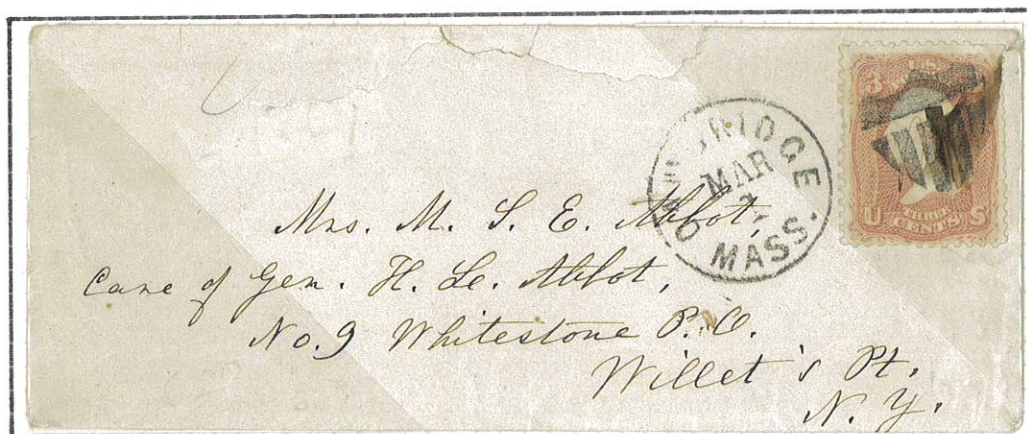 3 U.S.
U THREE S
CENTS
BRIDGE
MAR
2
MASS.
Mrs. M. S. E. Abbot,
Care of Gen. H. L. Abbot,
No. 9 Whitestone P. O.
Willet's Pt.
N. Y.